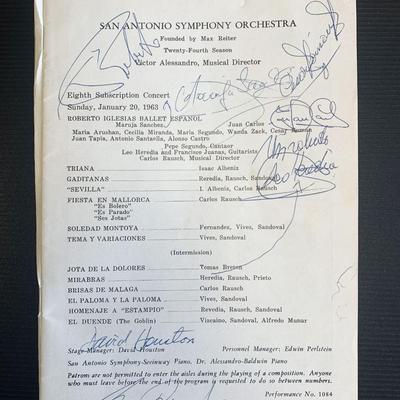 SAN ANTONIO SYMPHONY ORCHESTRA
Founded by Max Reiter
Twenty-Fourth Season
Victor Alessandro, Musical Director
Eighth Subscription Concert
Sunday, January 20, 1963
ROBERTO IGLESIAS BALLET ESPAÑOL
Maruja Sanchez, Juan Carlos
Maria Arushan, Cecilia Miranda, Maria Segundo, Wanda Zack, Cesar
Juan Tapia, Antonio Santaella, Alonso Castro
Pepe Segundo, Cantaor
Leo Heredia and Francisco Juanas, Guitarists
Carlos Rausch, Musical Director
TRIANA Isaac Albeniz
GADITANAS Heredia, Rausch, Sandoval
"SEVILLA" I. Albeniz, Carlos Rausch
FIESTA EN MALLORCA Carlos Rausch
"Es Bolero"
"Es Parado"
"Ses Jotas"
SOLEDAD MONTOYA Fernandez, Vives, Sandoval
TEMA Y VARIACIONES Vives, Sandoval
(Intermission)
JOTA DE LA DOLORES Tomas Breton
MIRABRAS Heredia, Rausch, Prieto
BRISAS DE MALAGA Carlos Rausch
EL PALOMA Y LA PALOMA Vives, Sandoval
HOMENAJE A "ESTAMPIO" Revedia, Rausch, Sandoval
EL DUENDE (The Goblin) Viscaino, Sandoval, Alfredo Munar
David Houston
Stage Manager: David Houston Personnel Manager: Edwin Perlstein
San Antonio Symphony-Steinway Piano, Dr. Alessandro-Baldwin Piano
Patrons are not permitted to enter the aisles during the playing of a composition. Anyone
who must leave before the end of the program is requested to do so between numbers.
Performance No. 1084